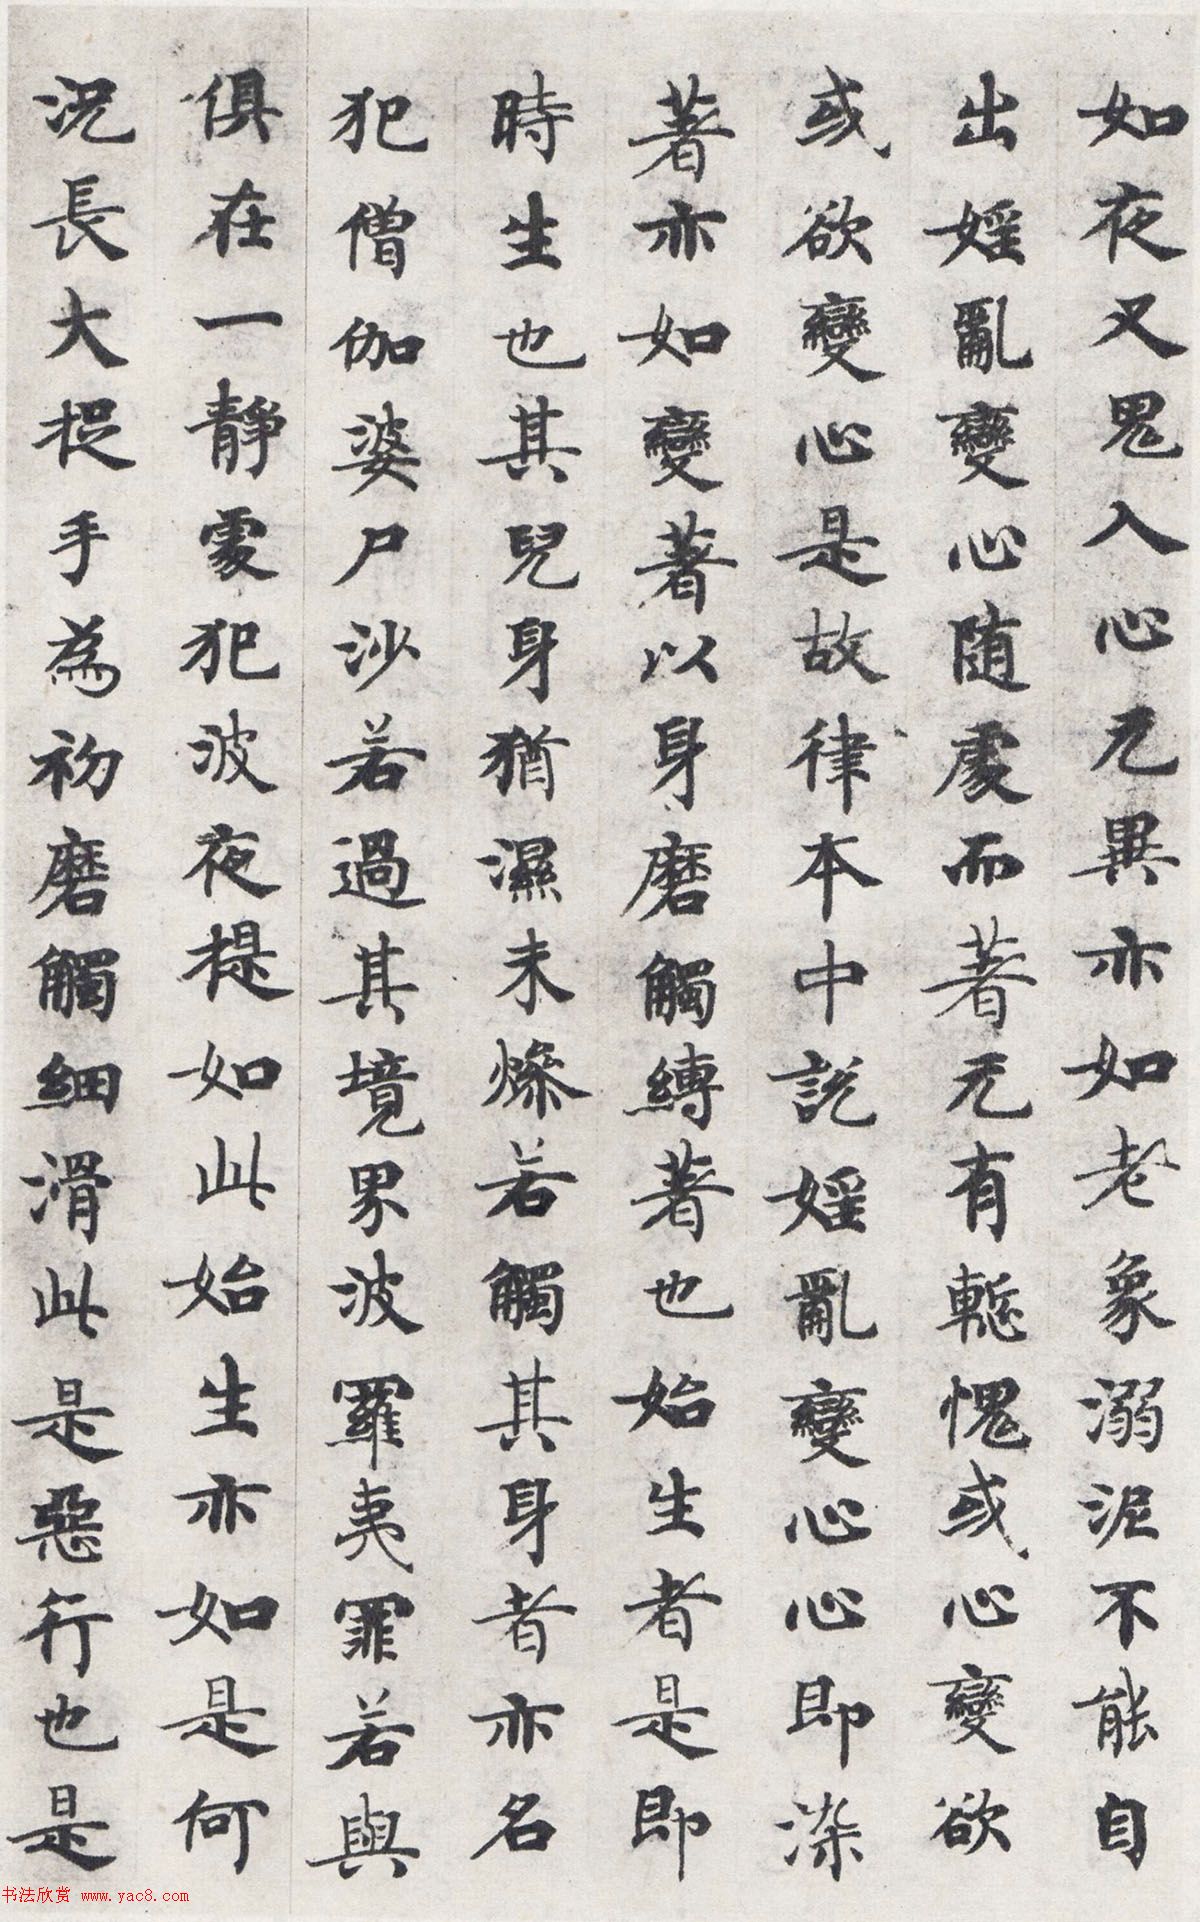 如夜叉鬼入心无異亦如老象溺泥不能自
出婬亂變心随處而著无有慙愧或心變欲
或欲變心是故律本中説婬亂變心心即染
著亦如變著以身磨觸縛著也始生者是即
時生也其兒身猶濕未燥若觸其身者亦名
犯僧伽婆尸沙若過其境界波羅夷罪若與
俱在一静處犯波夜提如此始生亦如是何
况長大捉手為初磨觸細滑此是惡行也是
书法欣赏 www.yac8.com